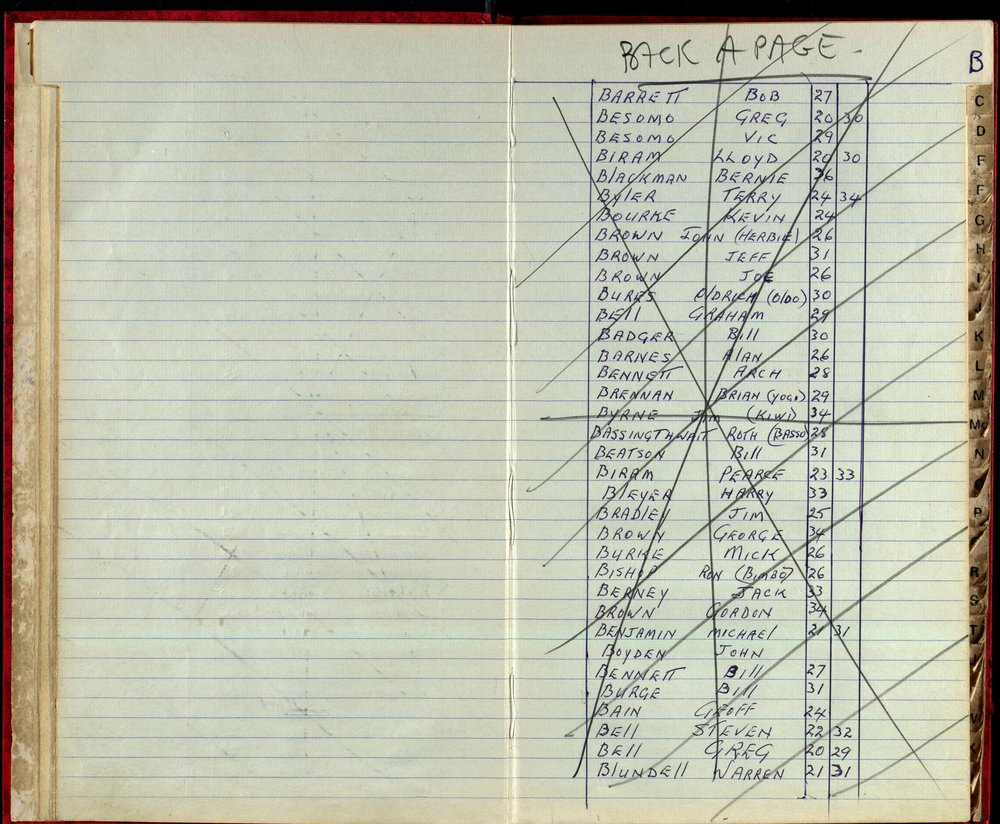 BACK A PAGE -
B
BARRETT BOB 27
BESOMO GREG 20 30
BESOMO VIC 29
BIRAM LLOYD 20 30
BLACKMAN BERNIE 36
BYLER TERRY 24 34
BOURKE KEVIN 24
BROWN JOHN (HERBIE) 26
BROWN JEFF 31
BROWN JOE 26
BURES OLDRICH (OLDO) 30
BELL GRAHAM 29
BADGER Bill 30
BARNES ALAN 26
BENNETT ARCH 28
BRENNAN BRIAN (YOGI) 29
BYRNE JIM (KIWI) 34
BASSINGTHWAIT ROTH (BASSO) 28
BEATSON Bill 31
BIRAM PEARCE 23 33
BLEYER HARRY 33
BRADLEY JIM 25
BROWN GEORGE 34
BURKE MICK 26
BISHOP RON (BIMBO) 26
BERNEY JACK 33
BROWN GORDON 34
BENJAMIN MICHAEL 21 31
BOYDEN JOHN
BENNETT Bill 27
BURGE Bill 31
BAIN GEOFF 24
BELL STEVEN 22 32
BELL GREG 20 29
BLUNDELL WARREN 21 31
C
D
F
F
G
H
I
J
K
L
M
Mc
N
O
P
R
S
T
W